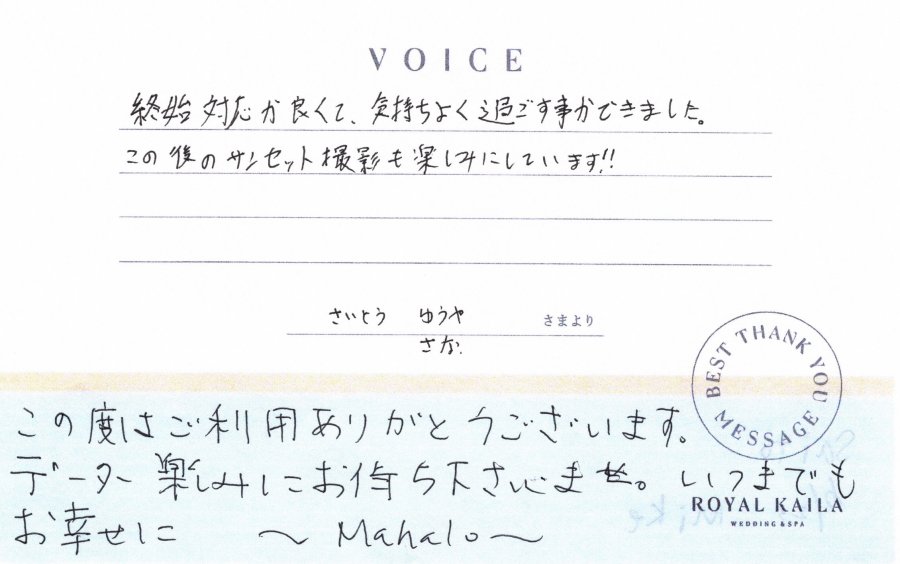 VOICE
終始対応が良くて、気持ちよく過ごす事ができました。
この後のサンセット撮影も楽しみにしています!!
さいとう ゆうや さまより
さな
BEST THANK YOU MESSAGE
この度はご利用ありがとうございます。
データー楽しみにお待ち下さいませ。いつまでも
ROYAL KAILA
WEDDING & SPA
お幸せに ～Mahalo～